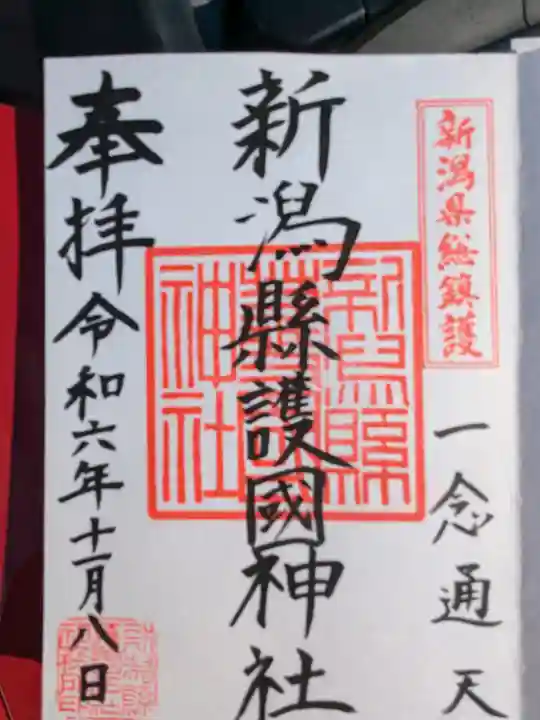 新潟県総鎮護
一念通天
新潟縣護國神社
新潟縣護國神社
奉拝
令和六年十一月八日